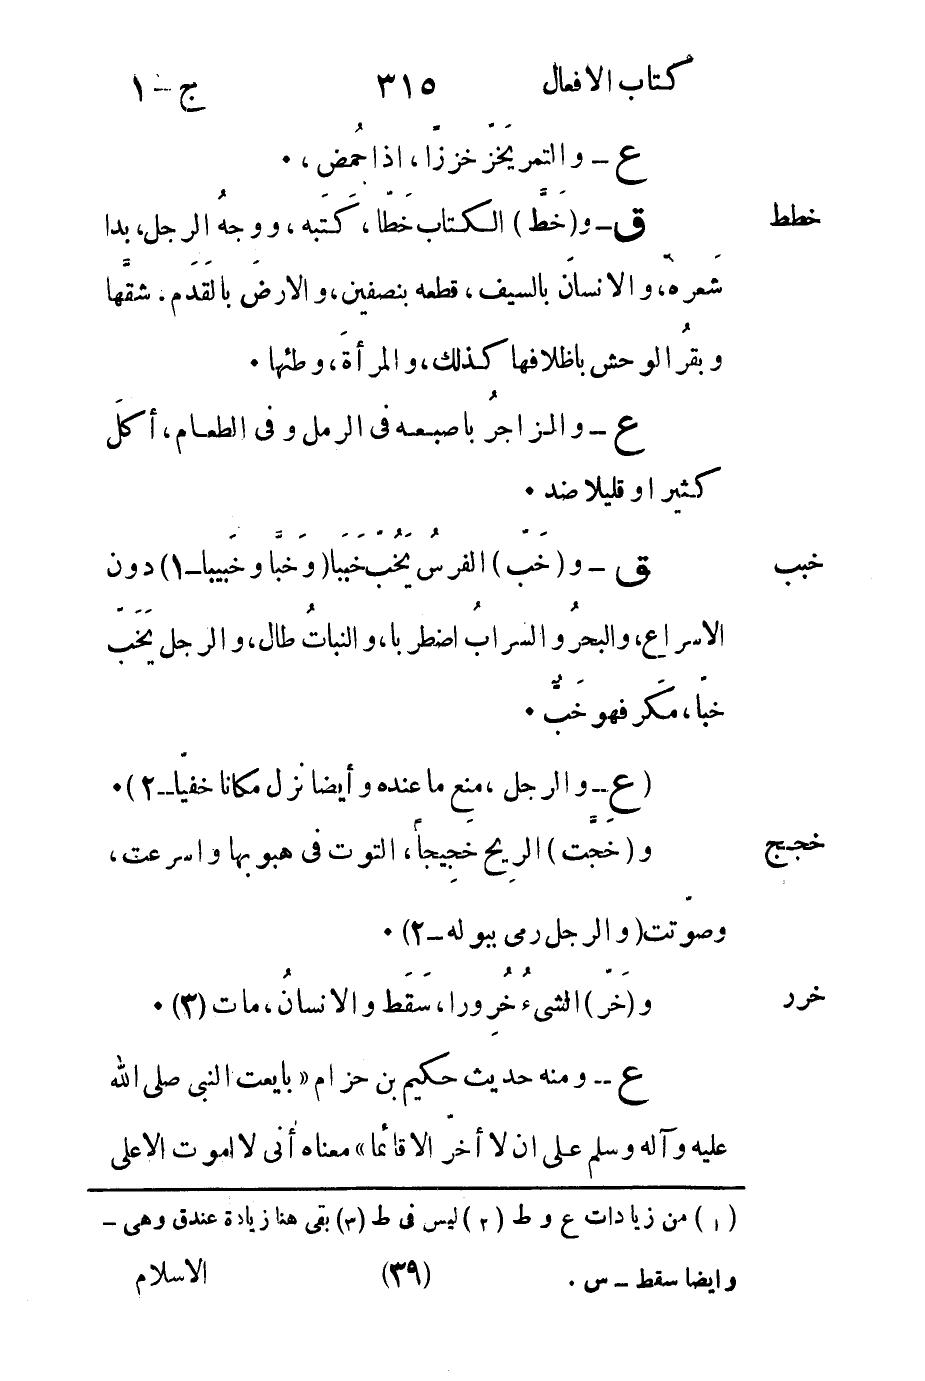 كتاب الافعال ٣١٥ ج - ١
ع ــ و التمر يَخَزّ خززًا، اذا حمُض، •
خطط ق ــ و(خَطَّ) الـكتاب خَطّا، كَتَبه، و وجهُ الرجل، بدا
شعرَه، و الانسانَ بالسيف، قطعه بنصفين، و الارضَ بالقَدَم. شقَّها
و بقرُ الوحش باظلافها كذلك، و المرأةَ، وطئها •
ع ــ و الزاجرُ باصبعه فى الرمل و فى الطعام، أكلَ
كثيرا و قليلا ضد •
خبب ق ــ و (خَبّ) الفرسُ يَخُبّ خَبَبَا (و خَبًّا و خَبيبا ــ ١) دون
الاسراع، والبحرُ و السرابُ اضطربا، و النباتُ طال، و الرجل يَخَبّ
خبّا، مَكَر فهو خَبٌّ •
(ع ــ و الرجل، منع ما عنده و أيضا نزل مكانا خفيّا ــ ٢) •
خجج و (خجَّت) الريح خجيجاً، التوت فى هبوبها و اسرعت،
وصوّتت (و الرجل رمى ببوله ــ ٢) •
خرر و (خَرّ) الشىءُ خُرورا، سَقَط و الانسانُ، مات (٣) •
ع ــ و منه حديث حكيم بن حزام «بايعت النبى صلى الله
عليه و آله و سلم على ان لا أخرّ الا قائما» معناه أنى لا اموت الا على
(١) من زيادات ع و ط (٢) ليس فى ط (٣) بقى هنا زيادة عندق وهى ــ
و ايضا سقط ــ س • (٣٩) الاسلام